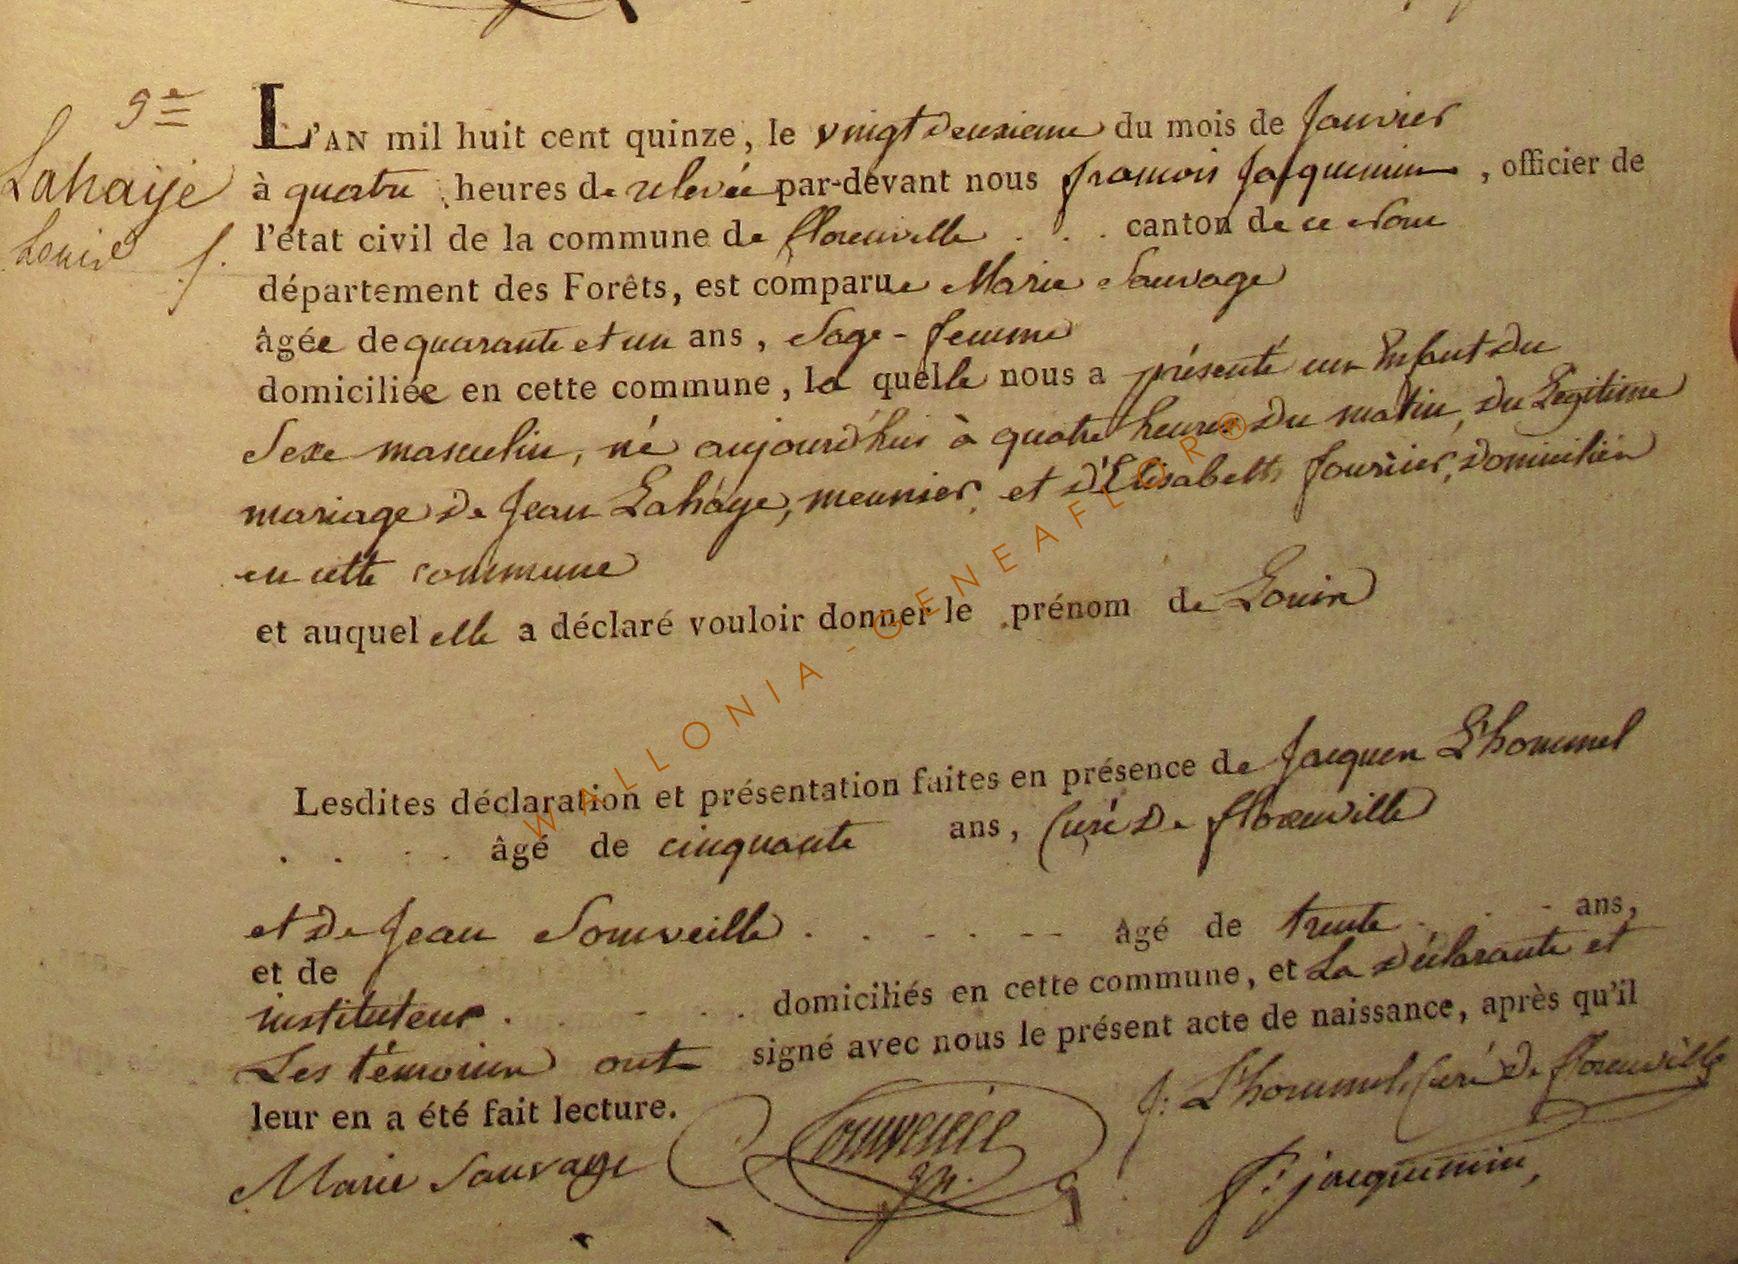 9e
Lahaije
Louis
f.
L'AN mil huit cent quinze, le vingt deuxieme du mois de Janvier
à quatre heures de relevée par-devant nous françois Jacquemin, officier de
l'état civil de la commune de florenville . . . canton de ce nom
département des Forêts, est comparue Marie Sauvage
âgée de quarante et un ans, Sage-femme
domiciliée en cette commune, la quelle nous a présenté un Enfant du
Sexe masculin, né aujourd'hui à quatre heures du matin, du Légitime
mariage de Jean Lahaye, meunier, et d'Elisabeth fournier, domiciliés
en cette commune
et auquel elle a déclaré vouloir donner le prénom de Louis
Lesdites déclaration et présentation faites en présence de Jacques L'hommel
. . . . âgé de cinquante ans, Curé de florenville
et de Jean Somveille . . . . . - - âgé de trente . . - ans,
et de
instituteur . . - . . domiciliés en cette commune, et La déclarante et
Les témoins ont signé avec nous le présent acte de naissance, après qu'il
leur en a été fait lecture.
J: L'hommel Curé de florenville
Marie Sauvage
Somveille
f: jacquemin,
WALLONIA-GENEAFLOR®